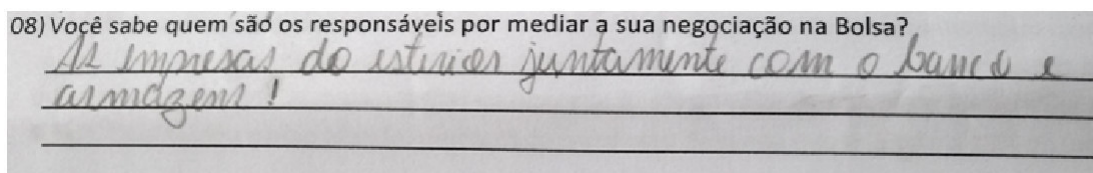 08) Você sabe quem são os responsáveis por mediar a sua negociação na Bolsa?
As impresas do esterior juntamente com o banco e
armazens!